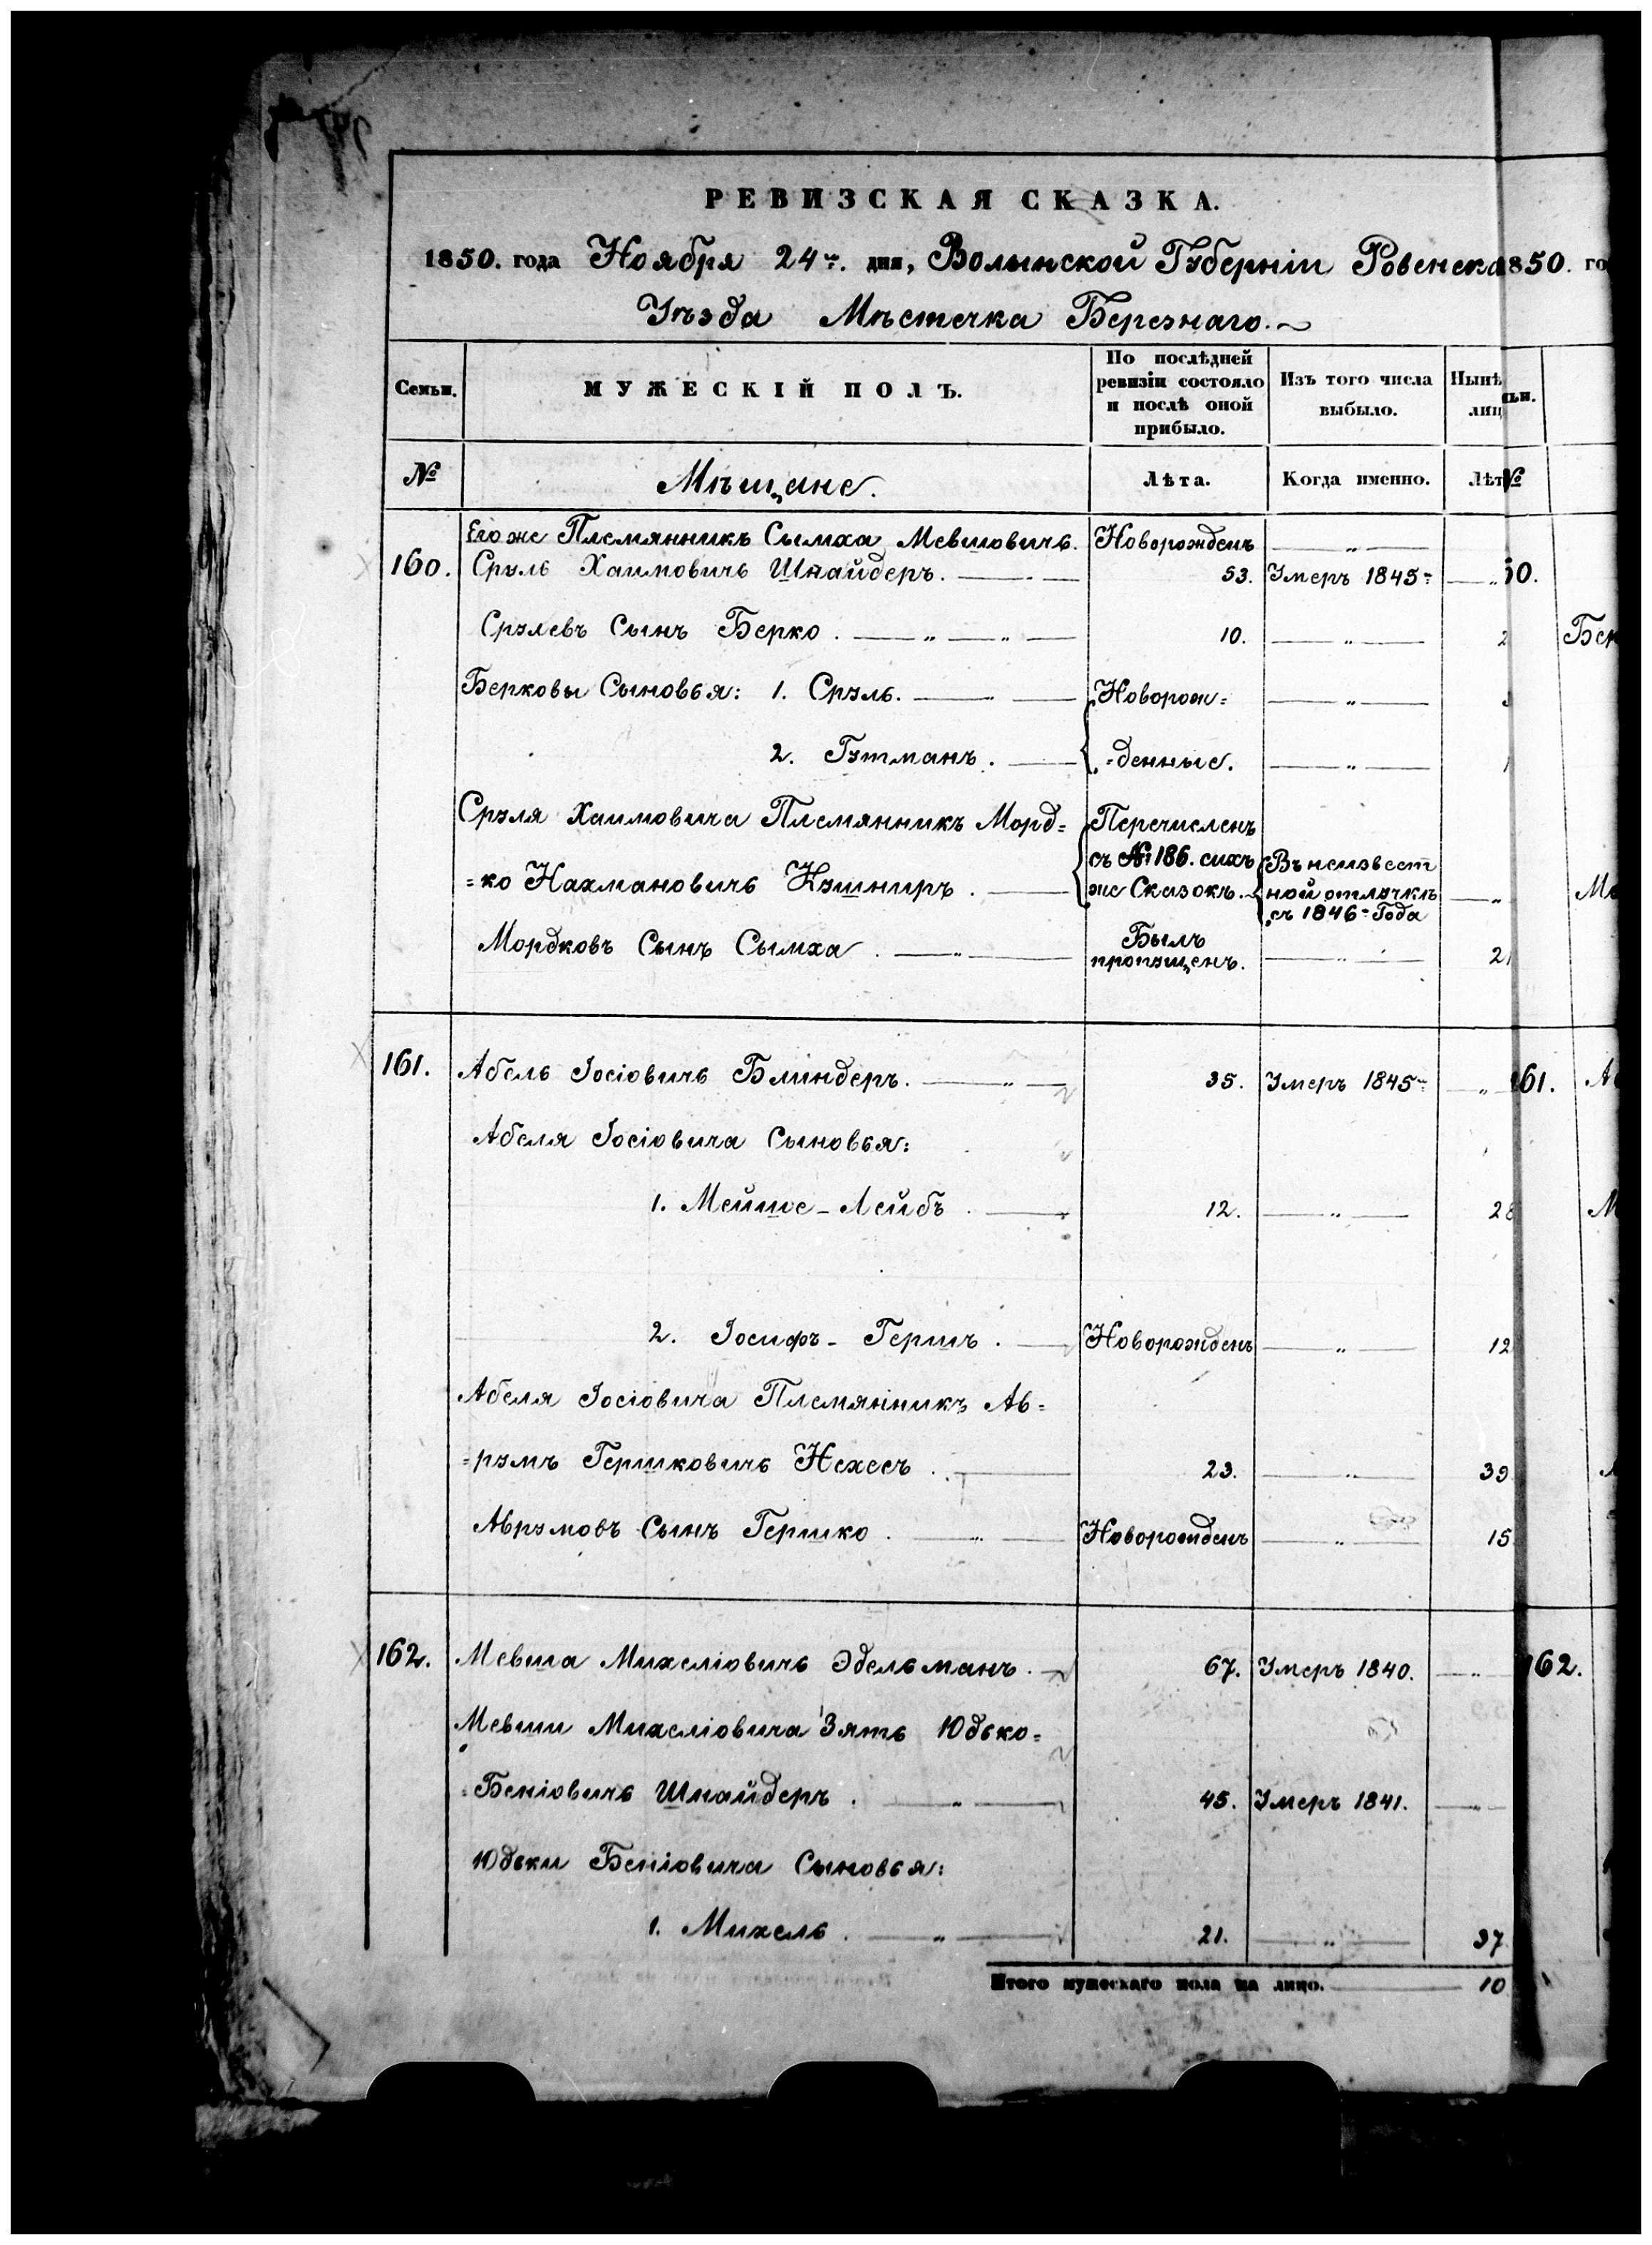 РЕВИЗСКАЯ СКАЗКА.
1850. года Ноября 24го. дня, Волынской Губерніи Ровенска 1850. го
Уѣзда Мѣстечка Березнаго.
Семьи. МУЖЕСКІЙ ПОЛЪ. По послѣдней ревизіи состояло и послѣ оной прибыло. Изъ того числа выбыло. Нынѣ лиц ьи.
№ Мѣщане. Лѣта. Когда именно. Лѣт №
Его же Племянникъ Сымха Мевшовичь. Новорожденъ „
160. Сруль Хаимовичь Шнайдеръ. 53. Умеръ 1845 „ 60.
Срулевъ Сынъ Берко. „ „ 10. „ 2 Бер
Берковы Сыновья: 1. Сруль. Новорож= „
2. Гутманъ. =денные. „ 1
Сруля Хаимовича Племянникъ Морд= Перечисленъ
съ №186. сихъ Въ неизвест
=ко Нахмановичь Кушниръ. же Сказокъ. ной отлучкѣ „ Мо
съ 1846 Года
Мордковъ Сынъ Сымха. „ Былъ пропущенъ. „ 21
161. Абель Іосіовичь Блиндеръ. „ 35. Умеръ 1845 „ 161. Аб
Абеля Іосіовича Сыновья:
1. Мейше-Лейбъ 12. „ 28 М
2. Іосифъ-Гершъ. Новорожденъ „ 12
Абеля Іосіовича Племянникъ Ав=
=румъ Гершковичь Нехесъ. 23. „ 39
Аврумовъ Сынъ Гершко. „ Новорожденъ „ 15
162. Мевша Михеліовичь Эдельманъ. 67. Умеръ 1840. „ 162.
Мевши Михеліовича Зять Юдько=
=Беніовичь Шнайдеръ. „ 45. Умеръ 1841. „
Юдьки Беніовича Сыновья:
1. Михель. „ 21. „ 37
Итого мужескаго пола на лицо. 10